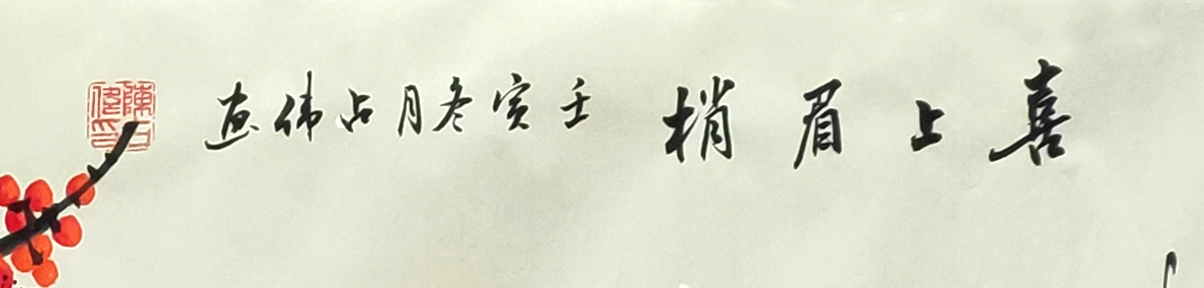 喜上眉梢
壬寅冬月占伟画